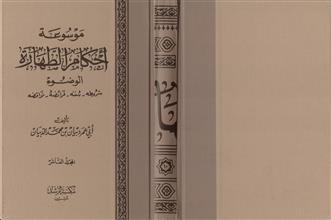 موسوعة
أحكام الطهارة
الوضوء
شروطه - سننه - فرائضه - نواقضه
تأليف
أبي عمر دبيان بن محمد الدبيان
المجلد العاشر
مكتبة الرشد